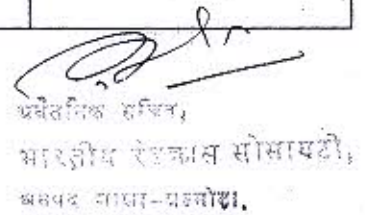 अवैतनिक सचिव,
भारतीय रेडक्रास सोसायटी,
जनपद शाखा-